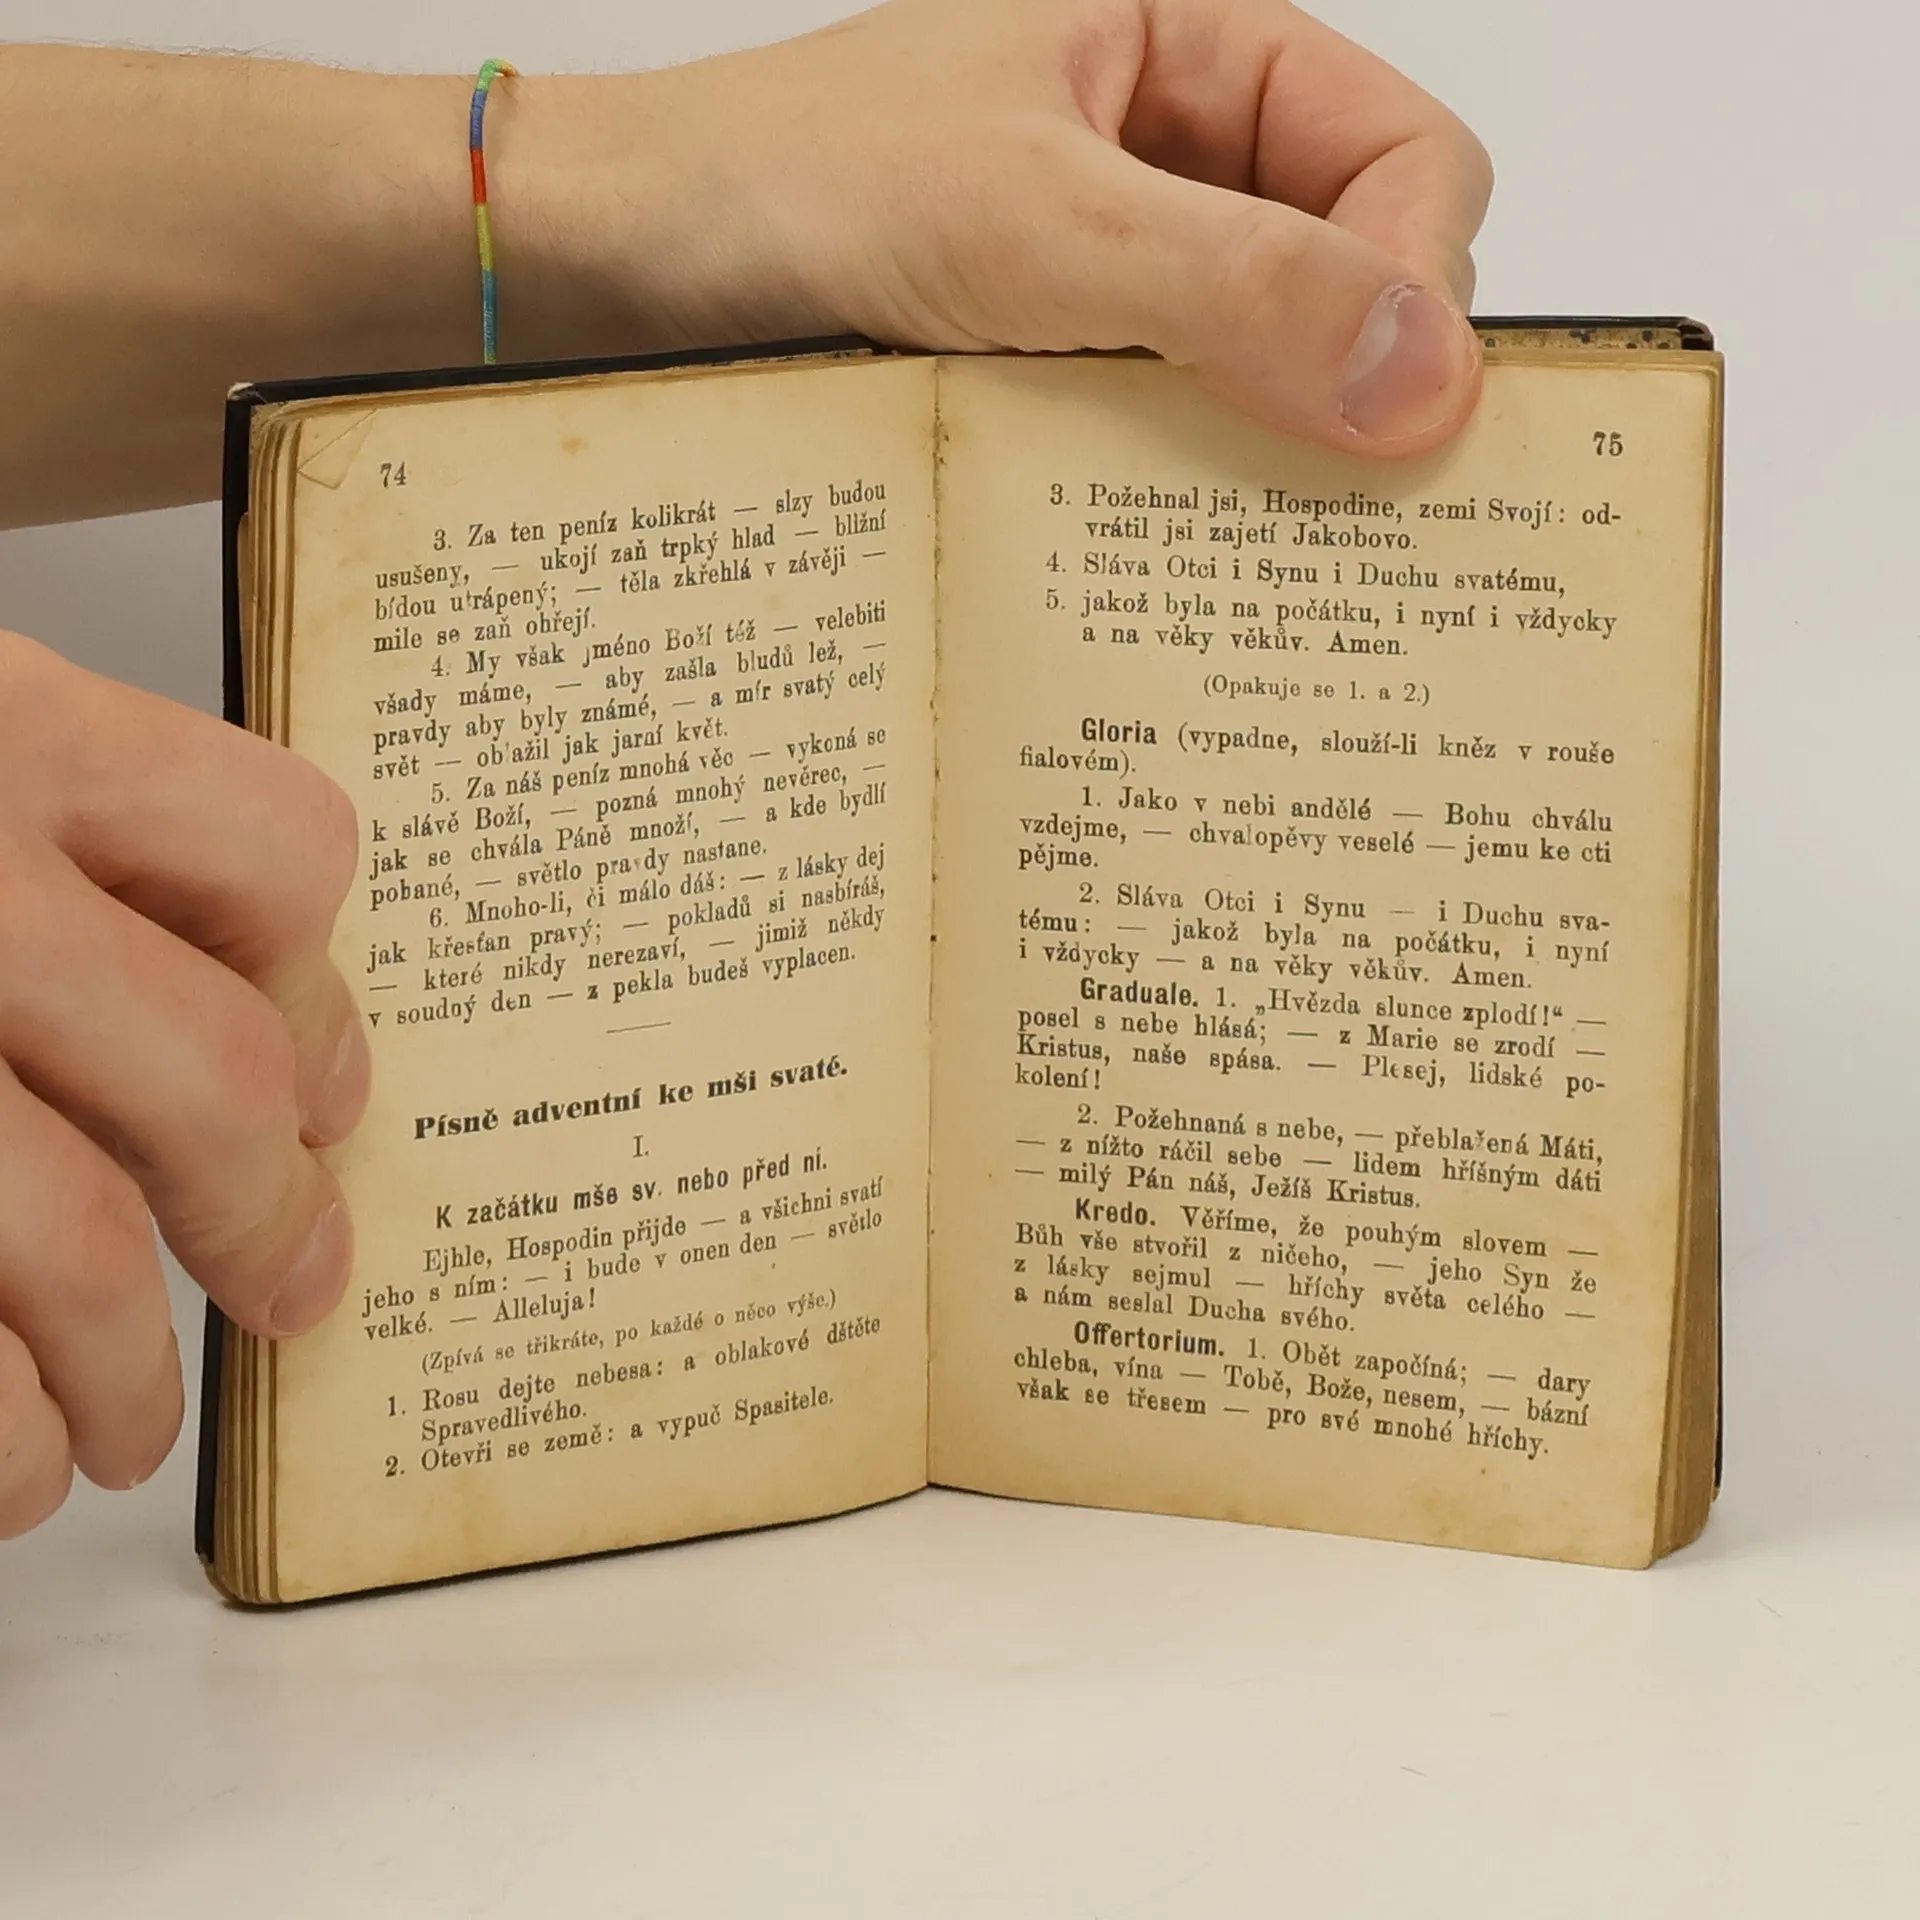 74
3. Za ten peníz kolikrát — slzy budou
usušeny, — ukojí zaň trpký hlad — bližní
bídou utrápený; — těla zkřehlá v závěji —
mile se zaň ohřejí.
4. My však jméno Boží též — velebiti
všady máme, — aby zašla bludů lež, —
pravdy aby byly známé, — a mír svatý celý
svět — oblažil jak jarní květ.
5. Za náš peníz mnohá věc — vykoná se
k slávě Boží, — pozná mnohý nevěrec, —
jak se chvála Páně množí, — a kde bydlí
pohané, — světlo pravdy nastane.
6. Mnoho-li, či málo dáš: — z lásky dej
jak křesťan pravý; — pokladů si nasbíráš,
— které nikdy nerezaví, — jimiž někdy
v soudný den — z pekla budeš vyplacen.
Písně adventní ke mši svaté.
I.
K začátku mše sv. nebo před ní.
Ejhle, Hospodin přijde — a všichni svatí
jeho s ním: — i bude v onen den — světlo
velké. — Alleluja!
(Zpívá se třikráte, po každé o něco výše.)
1. Rosu dejte nebesa: a oblakové dštěte
Spravedlivého.
2. Otevři se země: a vypuč Spasitele.
75
3. Požehnal jsi, Hospodine, zemi Svojí: od-
vrátil jsi zajetí Jakobovo.
4. Sláva Otci i Synu i Duchu svatému,
5. jakož byla na počátku, i nyní i vždycky
a na věky věkův. Amen.
(Opakuje se 1. a 2.)
Gloria (vypadne, slouží-li kněz v rouše
fialovém).
1. Jako v nebi andělé — Bohu chválu
vzdejme, — chvalopěvy veselé — jemu ke cti
pějme.
2. Sláva Otci i Synu — i Duchu sva-
tému: — jakož byla na počátku, i nyní
i vždycky — a na věky věkův. Amen.
Graduale. 1. „Hvězda slunce zplodí!“ —
posel s nebe hlásá; — z Marie se zrodí —
Kristus, naše spása. — Plesej, lidské po-
kolení!
2. Požehnaná s nebe, — přeblažená Máti,
— z nížto ráčil sebe — lidem hříšným dáti
— milý Pán náš, Ježíš Kristus.
Kredo. Věříme, že pouhým slovem —
Bůh vše stvořil z ničeho, — jeho Syn že
z lásky sejmul — hříchy světa celého —
a nám seslal Ducha svého.
Offertorium. 1. Obět započíná; — dary
chleba, vína — Tobě, Bože, nesem, — bázní
však se třesem — pro své mnohé hříchy.